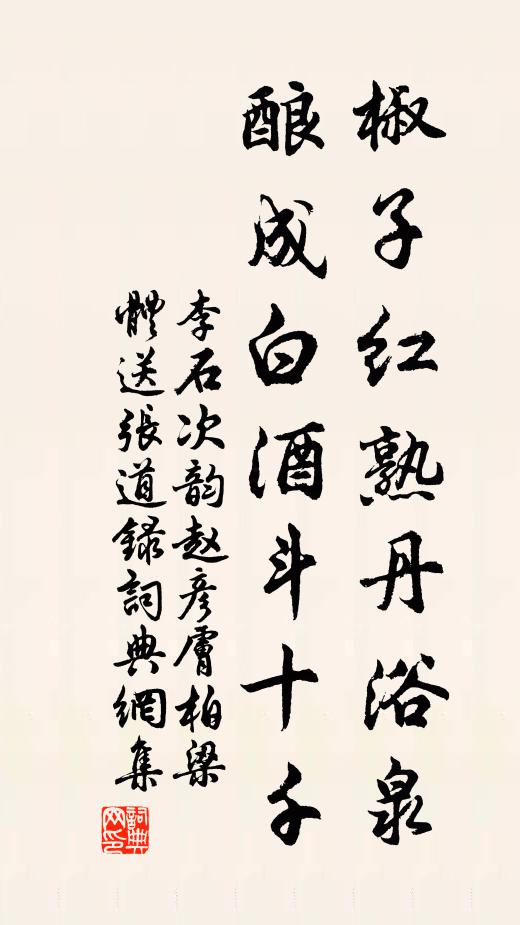 椒子红熟丹浴泉
酿成白酒斗十千
李石次韵赵彦膚柏梁
體送張道録詞典網集
詞典网印